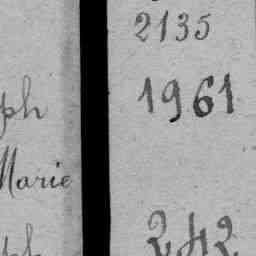 2135
ph 1961
Marie
ph 242